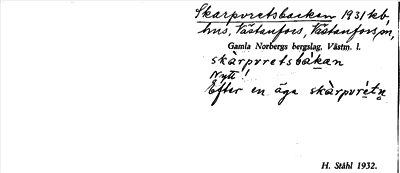 Skarpvretsbacken 1931 kb,
hus, Västanfors, Västanforssn,
Gamla Norbergs bergslag, Västm. l.
skàrpvretsbákan
Nytt!
Efter en äga skàrpvrétn
H. Ståhl 1932.